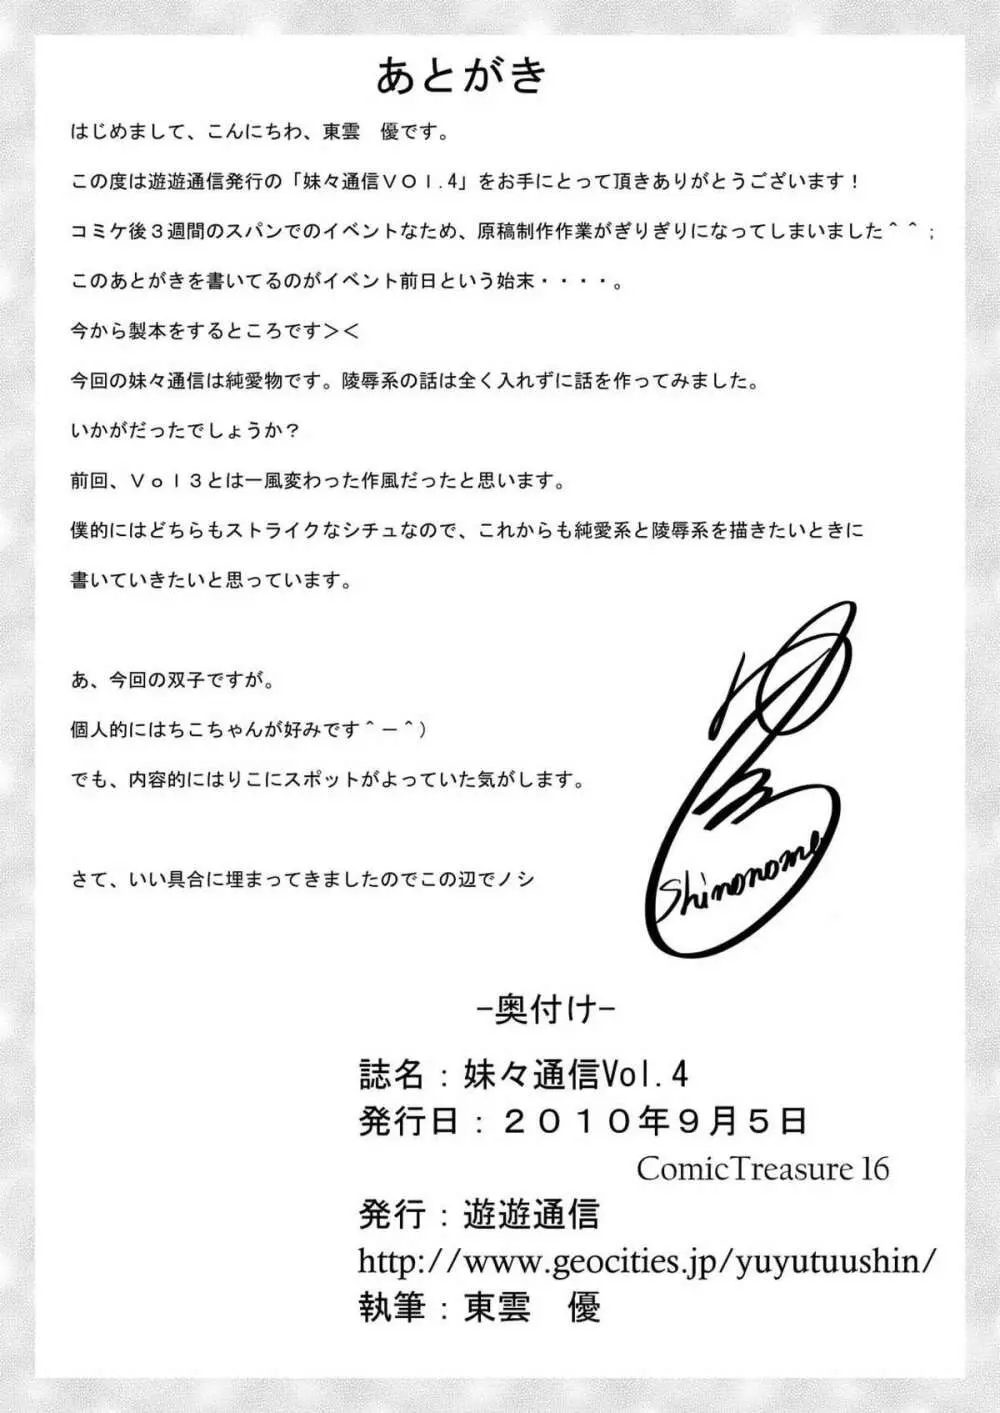 あとがき
はじめまして、こんにちわ、東雲　優です。
この度は遊遊通信発行の「妹々通信ＶＯｌ.４」をお手にとって頂きありがとうございます！
コミケ後３週間のスパンでのイベントなため、原稿制作作業がぎりぎりになってしまいました＾＾；
このあとがきを書いてるのがイベント前日という始末・・・・。
今から製本をするところです＞＜
今回の妹々通信は純愛物です。陵辱系の話は全く入れずに話を作ってみました。
いかがだったでしょうか？
前回、Ｖｏｌ３とは一風変わった作風だったと思います。
僕的にはどちらもストライクなシチュなので、これからも純愛系と陵辱系を描きたいときに
書いていきたいと思っています。
あ、今回の双子ですが。
個人的にはちこちゃんが好みです＾－＾）
でも、内容的にはりこにスポットがよっていた気がします。
さて、いい具合に埋まってきましたのでこの辺でノシ
Shinonome
-奥付け-
誌名：妹々通信Vol.4
発行日：２０１０年９月５日
ComicTreasure 16
発行：遊遊通信
http://www.geocities.jp/yuyutuushin/
執筆：東雲　優